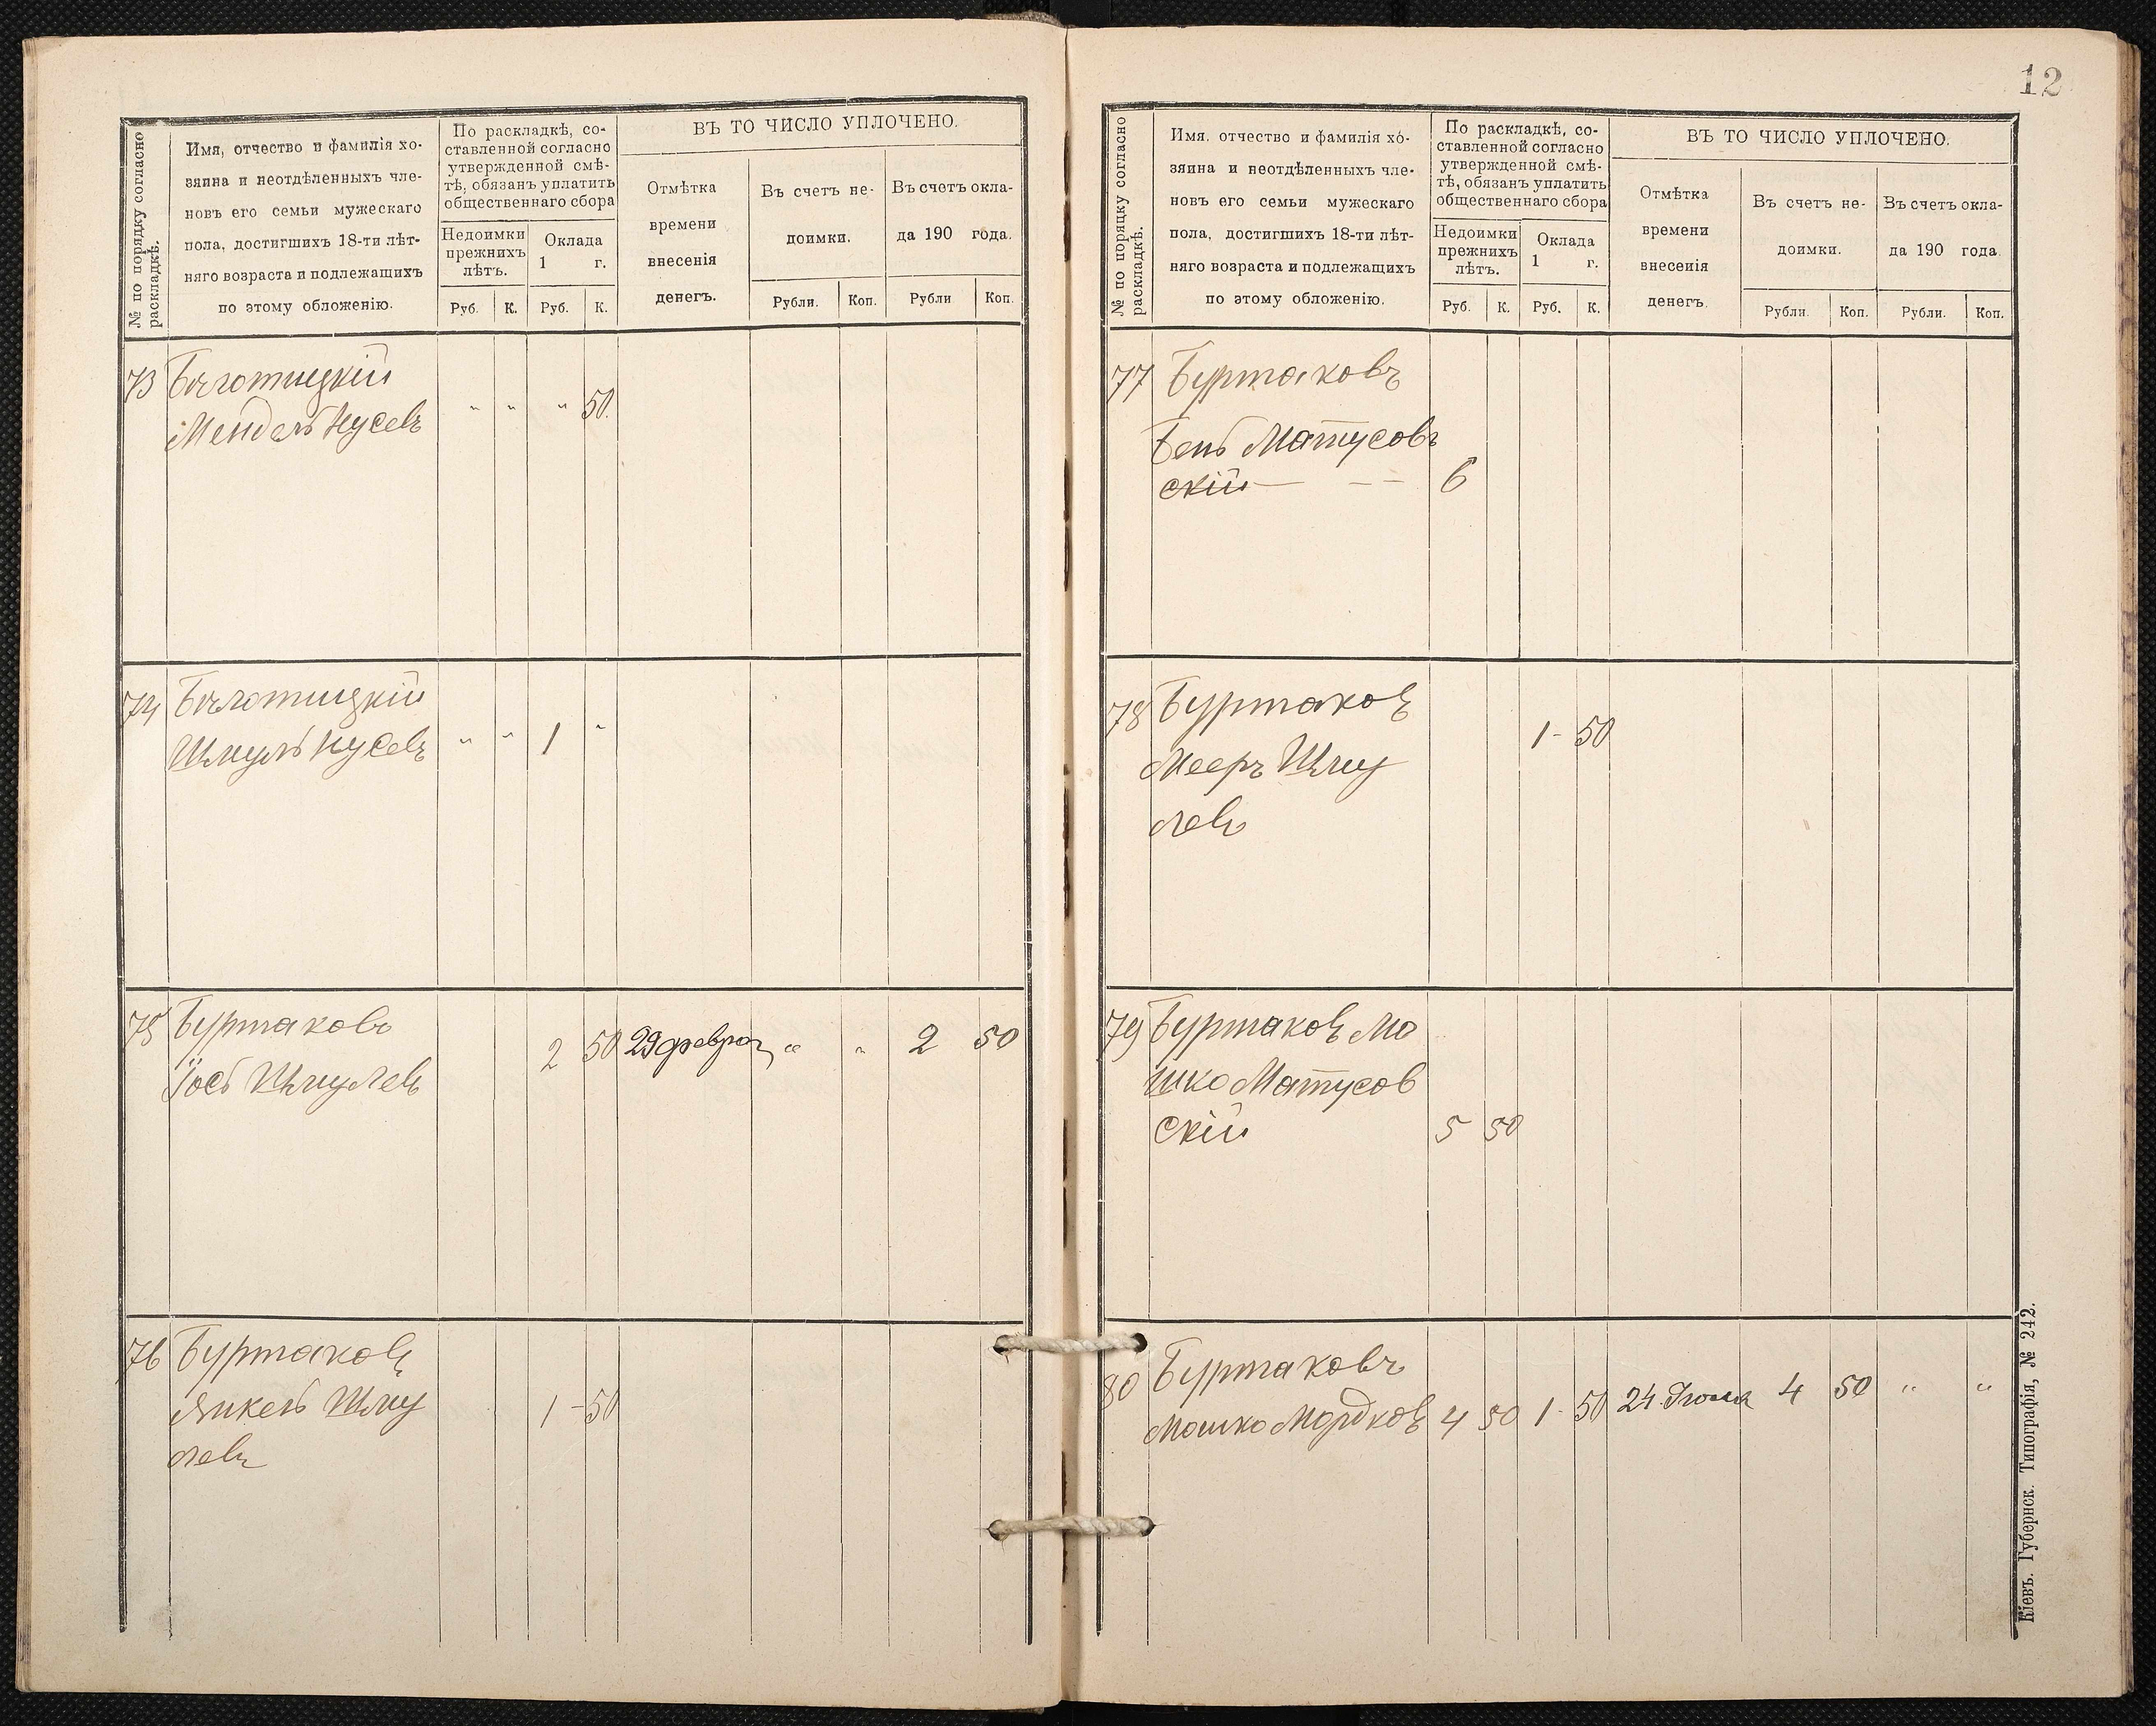 12
№ по порядку согласно
раскладкѣ.
Имя, отчество и фамилія хо-
зяина и неотдѣленныхъ чле-
новъ его семьи мужескаго
пола, достигшихъ 18-ти лѣт-
няго возраста и подлежащихъ
по этому обложенію.
По раскладкѣ, со-
ставленной согласно
утвержденной смѣ-
тѣ, обязанъ уплатить
общественнаго сбора
Недоимки
прежнихъ
лѣтъ.
Оклада
1 г.
Руб. К. Руб. К.
ВЪ ТО ЧИСЛО УПЛОЧЕНО.
Отмѣтка
времени
внесенія
денегъ.
Въ счетъ не-
доимки.
Въ счетъ окла-
да 190 года.
Рубли. Коп. Рубли Коп.
73 Бѣлотицкій
Мендель Нусевъ " " " 50.
74 Бѣлотицкій
Шмуль Нусевъ " " 1 "
75 Буртаковъ
2 50 29 феврал " " 2 50
Іось Шмулевъ
76 Буртаковъ
Янкель Шму 1 - 50
левъ
№ по порядку согласно
раскладкѣ.
Имя. отчество и фамилія хо-
зяина и неотдѣленныхъ чле-
новъ его семьи мужескаго
пола, достигшихъ 18-ти лѣт-
няго возраста и подлежащихъ
по этому обложенію.
По раскладкѣ, со-
ставленной согласно
утвержденной смѣ-
тѣ, обязанъ уплатить
общественнаго сбора
Недоимки
прежнихъ
лѣтъ.
Оклада
1 г.
Руб. К. Руб. К.
ВЪ ТО ЧИСЛО УПЛОЧЕНО.
Отмѣтка
времени
внесенія
денегъ.
Въ счетъ не-
доимки.
Въ счетъ окла-
да 190 года.
Рубли. Коп. Рубли. Коп.
77 Буртаковъ
Бень Матусовъ
скій — — — 6
78 Буртаковъ
1 - 50
Мееръ Шму
левъ
79 Буртаковъ Мо
шко Матусов
скій 5 50
80 Буртаковъ
Мошко Мордковъ 4 50 1 - 50 24 Іюля 4 50 " "
Кіевъ. Губернск. Типографія, № 242.